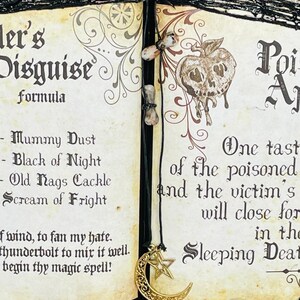 ler's
Disguise
formula
- Mummy Dust
- Black of Night
- Old Hags Cackle
Scream of Fright
of wind, to fan my hate.
thunderbolt to mix it well.
begin thy magic spell!
Poi
Ap
One tast
of the poisoned
and the victim's
will close for
in the
Sleeping Deat